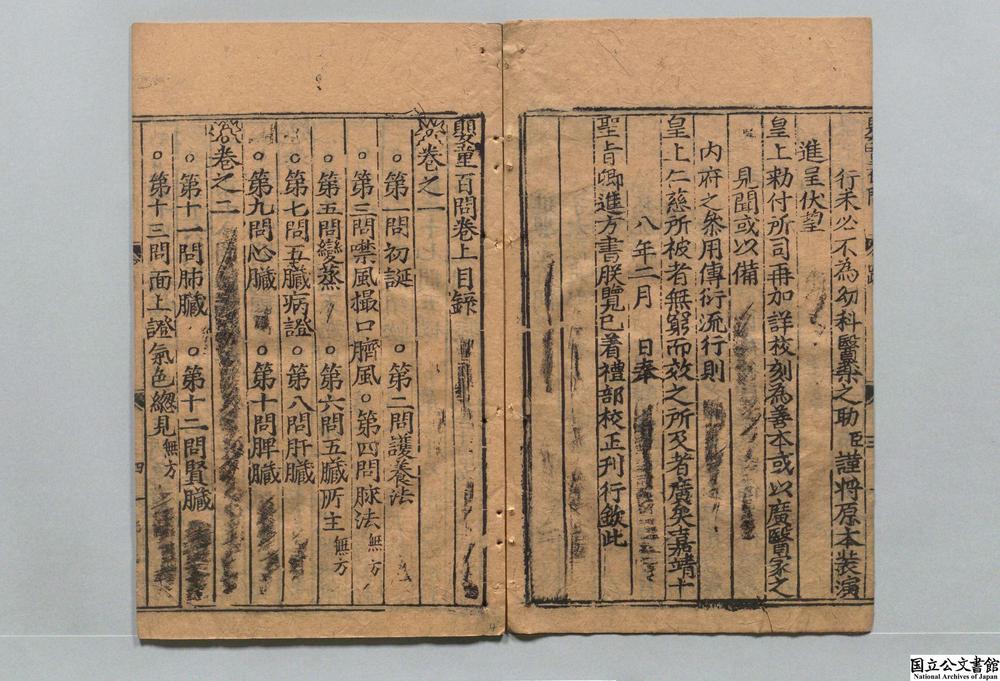 行未必不為幼科醫藥之助臣謹將原本裝演
進呈伏望
皇上勑付所司再加詳校刻為善本或以廣醫家之
見聞或以備
内府之叅用傳衍流行則
皇上仁慈所被者無窮而效之所及者廣矣嘉靖十
八年二月 日奉
聖旨卿進方書朕覽已着禮部校正刊行欽此
嬰童百問卷上目録
卷之一
○第一問初誕 ○第二問護養法
○第三問噤風撮口臍風 ○第四問脉法無方
○第五問變蒸 ○第六問五臟所主無方
○第七問五臟病證 ○第八問肝臟
○第九問心臟 ○第十問脾臟
卷之二
○第十一問肺臟 ○第十二問腎臟
○第十三問面上證氣色總見無方
四
国立公文書館
National Archives of Japan